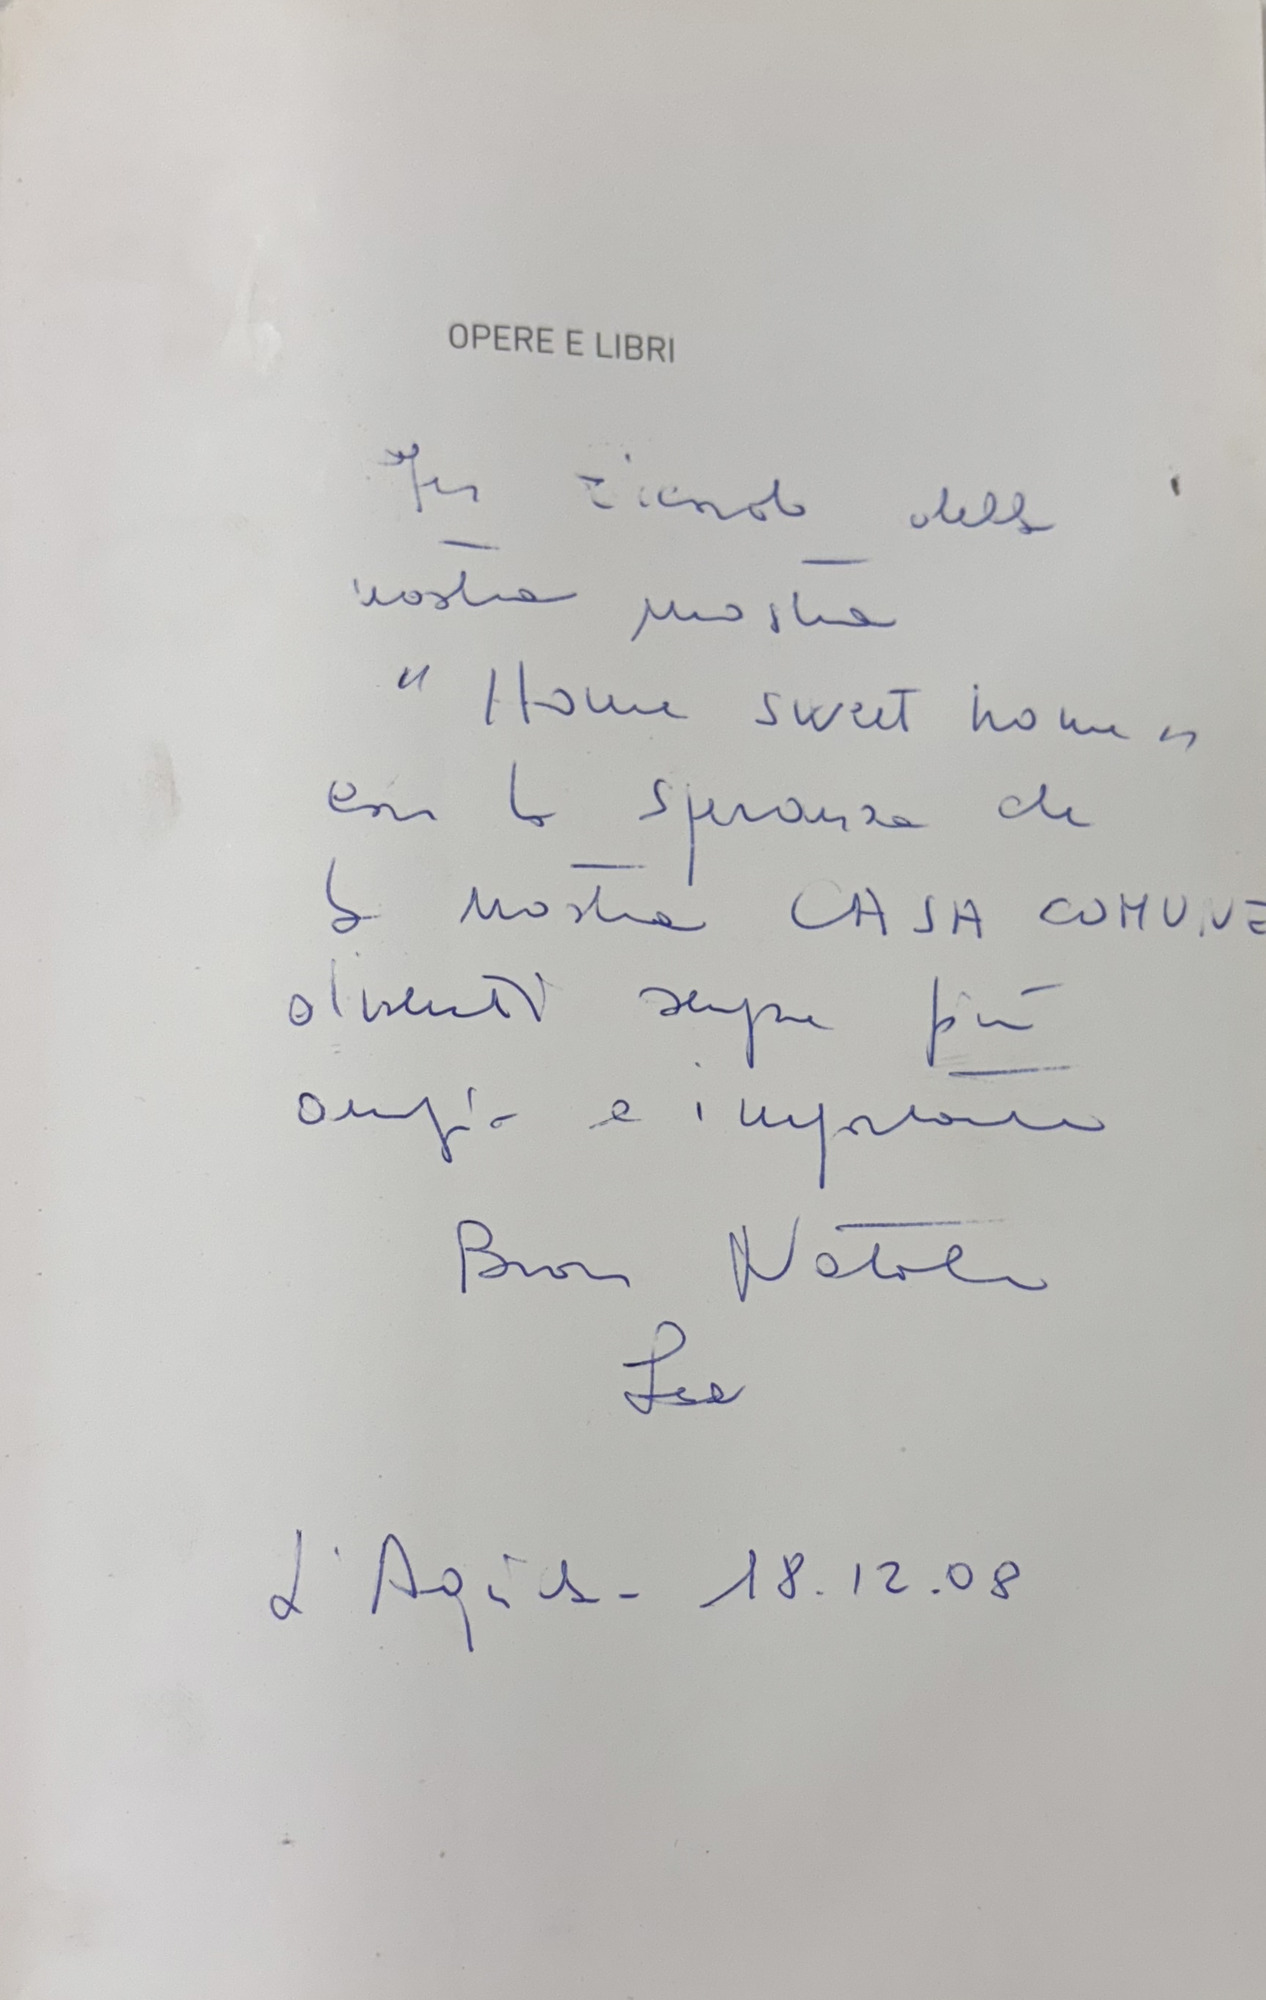 OPERE E LIBRI
Per ricordo della
nostra mostra
"Home sweet home"
con la speranza che
la nostra CASA COMUNE
diventi sempre più
ampia e importante
Buon Natale
L'Aquila - 18.12.08